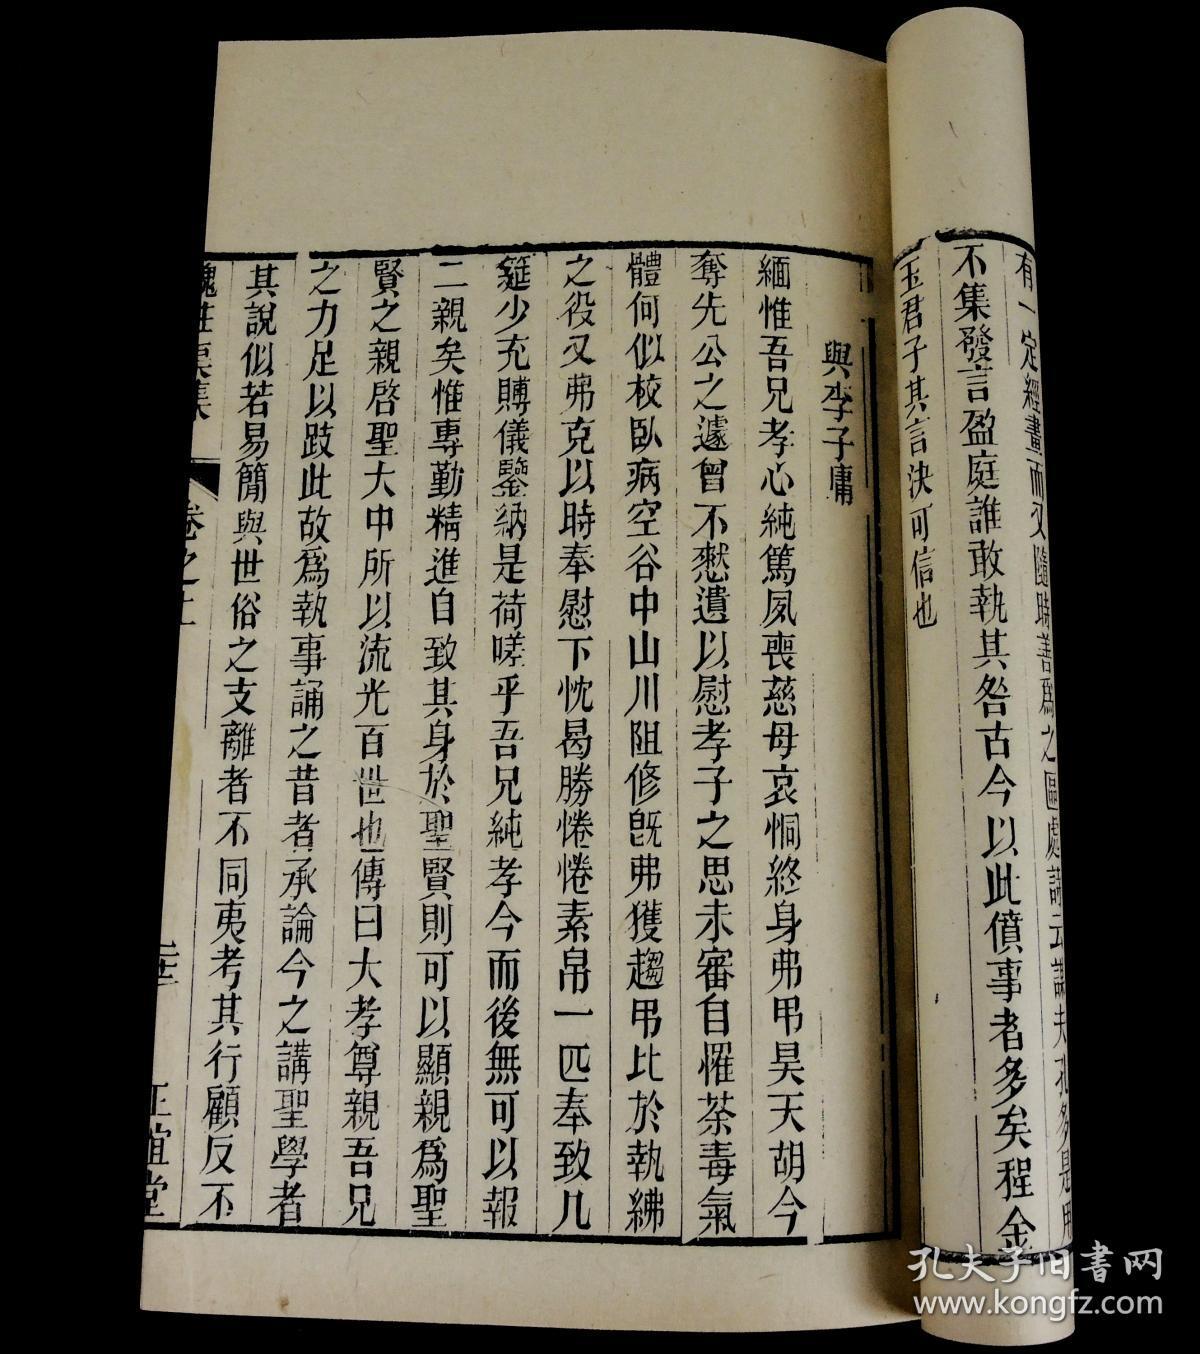 有一定經畫而又隨時善爲之區處詩云謀夫孔多是用
不集發言盈庭誰敢執其咎古今以此僨事者多矣程金
玉君子其言決可信也
與李子庸
緬惟吾兄孝心純篤夙喪慈母哀恫終身弗弔昊天胡今
奪先公之遽曾不憖遺以慰孝子之思未審自罹荼毒氣
體何似校臥病空谷中山川阻修旣弗獲趨弔比於執紼
之役又弗克以時奉慰下忱曷勝惓惓素帛一匹奉致几
筵少充賻儀鑒納是荷嗟乎吾兄純孝今而後無可以報
二親矣惟專勤精進自致其身於聖賢則可以顯親爲聖
賢之親啓聖大中所以流光百世也傳曰大孝尊親吾兄
之力足以跂此故爲執事誦之昔者承論今之講聖學者
其說似若易簡與世俗之支離者不同夷考其行顧反不
魏莊渠集 卷之上 正誼堂
孔夫子旧书网
www.kongfz.com